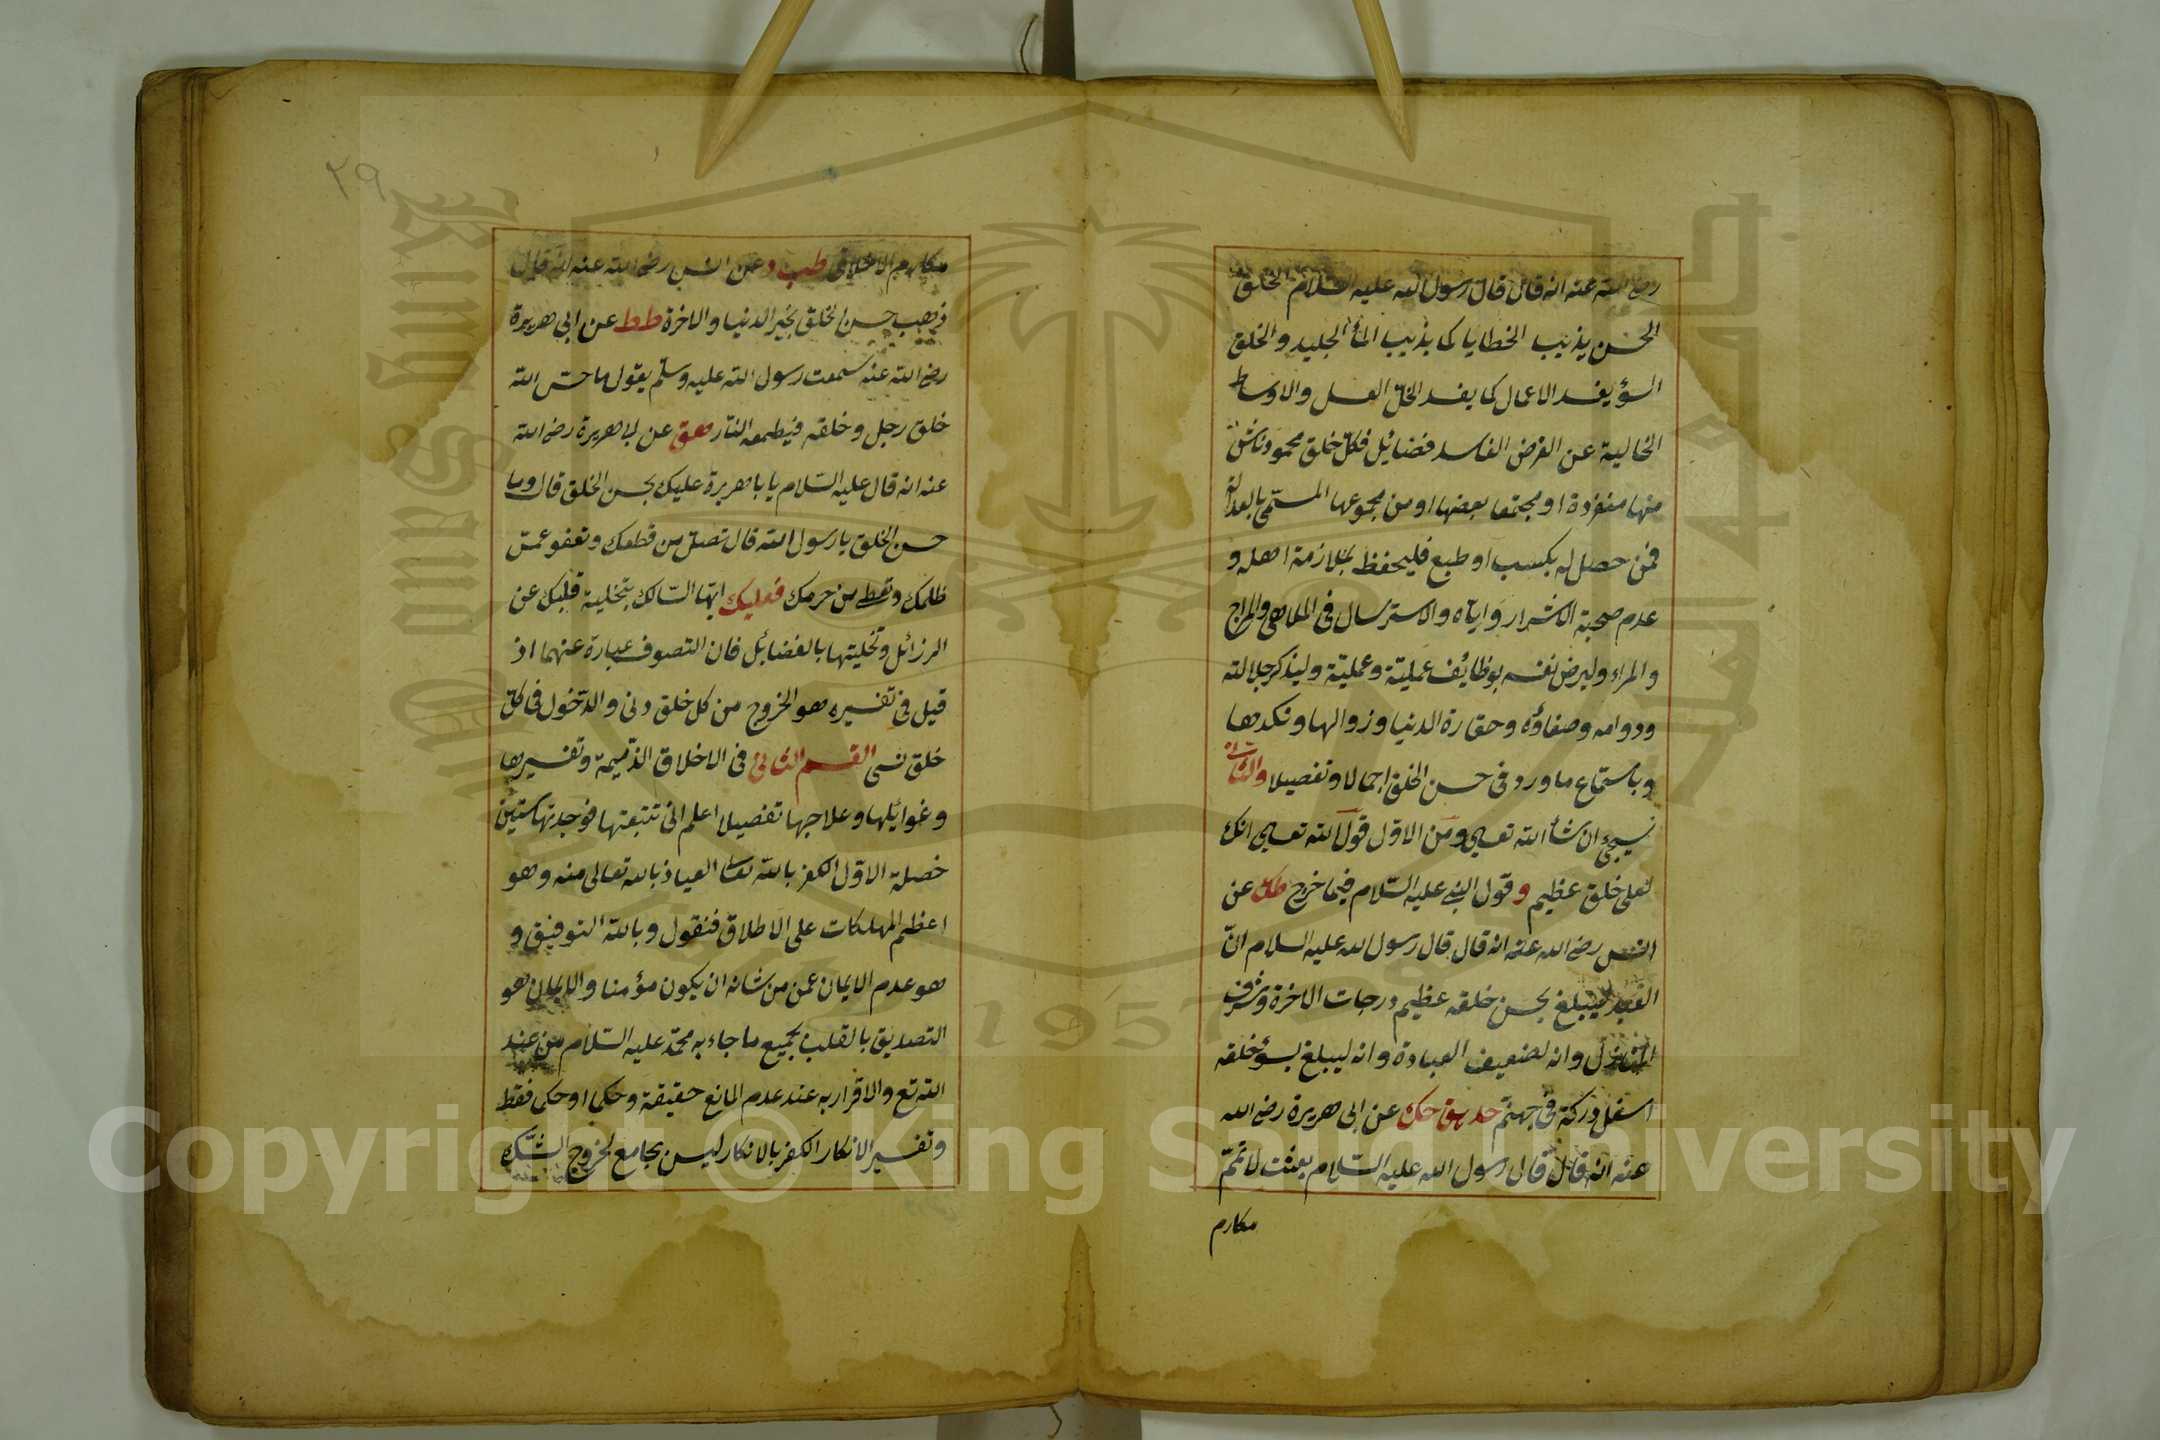 رضي الله عنه انه قال قال رسول الله عليه السلام الخلق
الحسن يذيب الخطايا كما يذيب الماء الجليد والخلق
السؤ يفسد الاعمال كما يفسد الخل العسل والاوساط
الخالية عن الغرض الفاسد فضايل فكل خلق محمود ناش
منها منفردة او مجتمعا بعضها او من مجموعها المسمى بالعدالة
فمن حصل له بكسب او طبع فليحفظ بملازمة اهله و
عدم صحبة الاشرار واياه والاسترسال في الملاهي والمزاح
والمراء وليرض نفسه بوظايف عملية وعملية وليذكر جلالته
ودوامه وصفاؤه وحقارة الدنيا وزوالها ونكدها
وباستماع ما ورد في حسن الخلق اجمالا وتفصيلا والثاني
سيجئ ان شاء الله تعالى ومن الاول قول الله تعالى انك
لعلى خلق عظيم وقول النبي عليه السلام فيما خرج طك عن
انس رضي الله عنه انه قال قال رسول الله عليه السلام ان
العبد ليبلغ بحسن خلقه عظيم درجات الاخرة وشرف
المنازل وانه لضعيف العبادة وانه ليبلغ بسؤ خلقه
اسفل دركة في جهنم حد هق حك عن ابي هريرة رضي الله
عنه انه قال قال رسول الله عليه السلام بعثت لاتمم
مكارم
٢٩
مكارم الاخلاق طب د عن انس رضي الله عنه انه قال
ذهب حسن الخلق بخير الدنيا والاخرة طط عن ابي هريرة
رضي الله عنه سمعت رسول الله عليه وسلم يقول ما حسن الله
خلق رجل وخلقه فيطعمه النار هق عن ابي هريرة رضي الله
عنه انه قال عليه السلام يا با هريرة عليك بحسن الخلق قال وما
حسن الخلق يا رسول الله قال تصل من قطعك وتعفو عمن
ظلمك وتعطي من حرمك فعليك ايها السالك بتخلية قلبك عن
الرزائل وتحليتها بالفضائل فان التصوف عبارة عنهما اذ
قيل في تفسيره هو الخروج من كل خلق دني والدخول في كل
خلق سني القسم الثاني في الاخلاق الذميمة وتفسيرها
وغوايلها وعلاجها تفصيلا اعلم اني تتبعتها فوجدتها ستين
خصلة الاول الكفر بالله تعالى العياذ بالله تعالى منه وهو
اعظم المهلكات على الاطلاق فنقول وبالله التوفيق و
هو عدم الايمان عمن من شانه ان يكون مؤمنا والايمان هو
التصديق بالقلب بجميع ما جاء به محمد عليه السلام من عند
الله تع والاقرار به عند عدم المانع حقيقة وحكما او حكما فقط
وتفسير الانكار الكفر بالانكار ليس بجامع لخروج الشك
King Saud University
1957
Copyright © King Saud University